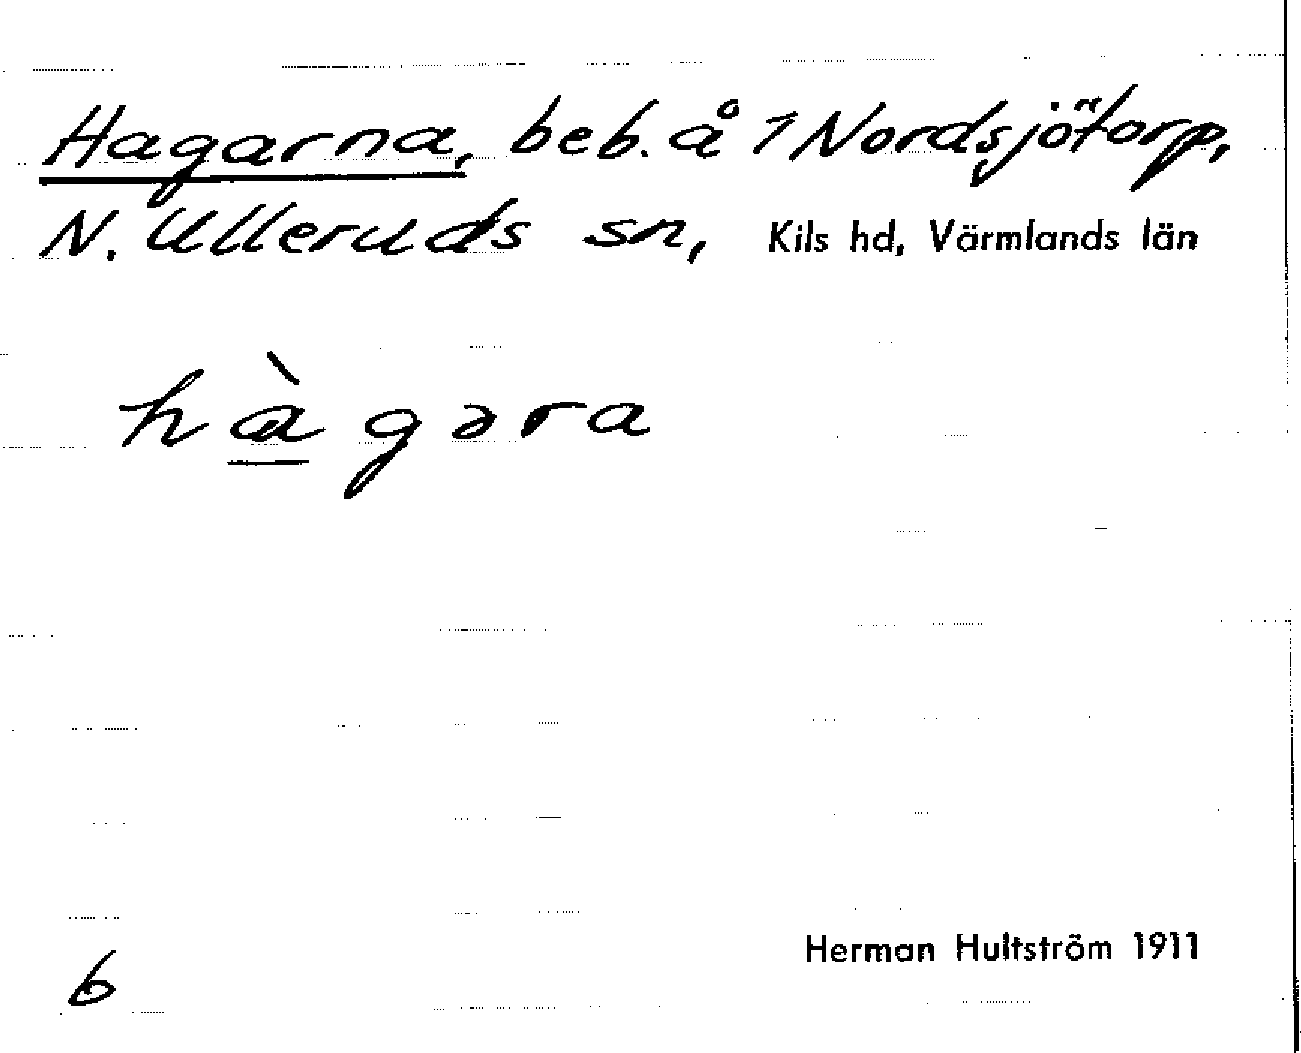 Hagarna, beb. å 1 Nordsjötorp,
N. Ulleruds sn, Kils hd, Värmlands län
hà̱gəra
Herman Hultström 1911
6